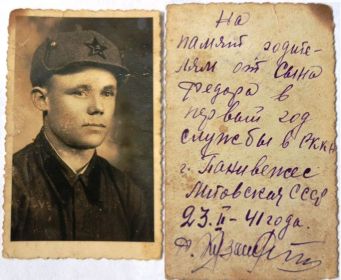 На
память родите-
лям от Сына
Федора в
первый год
службы в РККА
г. Паневежес
Литовская ССР
23. II - 41 года.